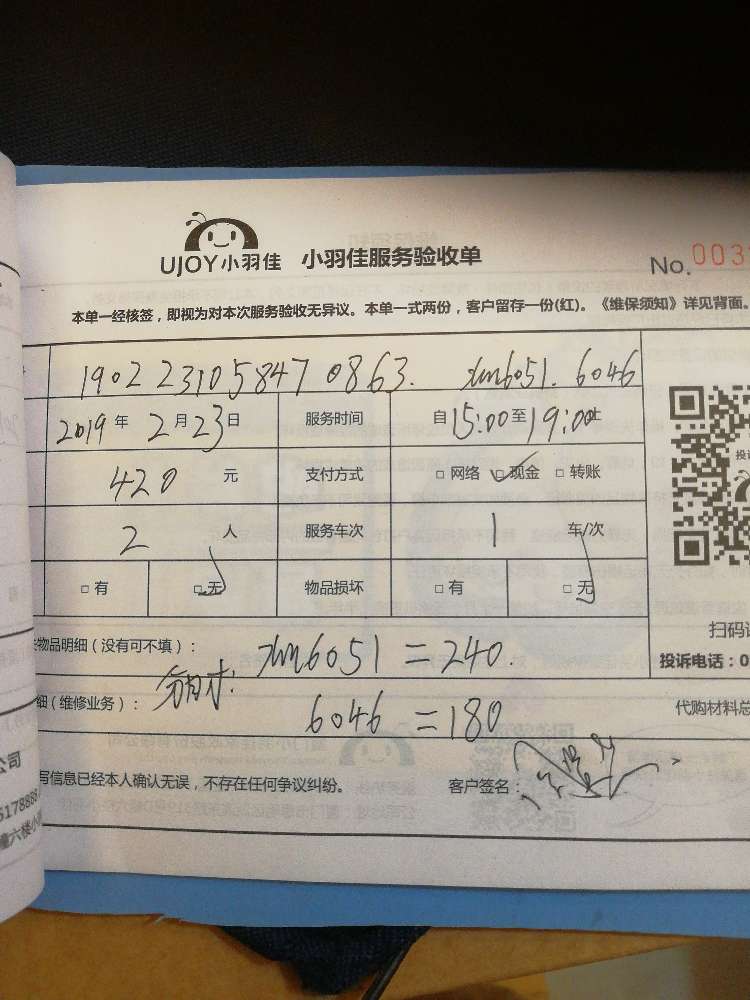 UJOY小羽佳 小羽佳服务验收单
No. 003
本单一经核签，即视为对本次服务验收无异议。本单一式两份，客户留存一份(红)。《维保须知》详见背面。
1902231058470863. xm6051. 6046
2019 年 2 月 23 日 服务时间 自 15:00 至 19:00 止
420 元 支付方式 □ 网络 □ 现金 □ 转账
2 人 服务车次 1 车/次
□ 有 □ 无 物品损坏 □ 有 □ 无
扫码
物品明细（没有可不填）： xm6051 = 240.
投诉电话：0
细（维修业务）： 6046 = 180
代购材料总
写信息已经本人确认无误，不存在任何争议纠纷。 客户签名：
公司
5178888
六楼小